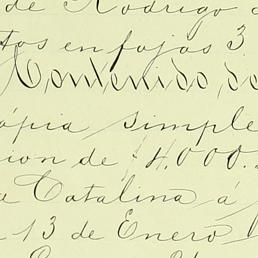 de Rodrigo
tos en fojas 3
Contenido de
ópia simple
cion de $4.000.
a Catalina á
13 de Enero